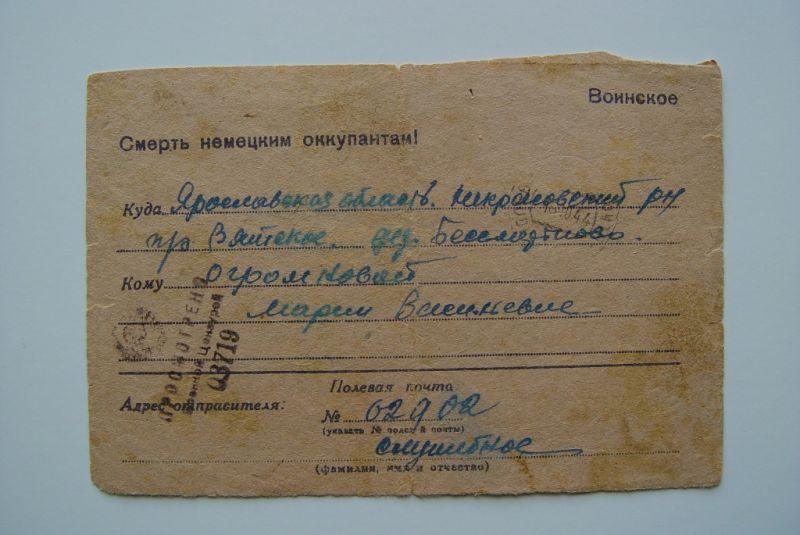 Воинское
Смерть немецким оккупантам!
Куда Ярославская область. Некрасовский рн
п/о Вятское дер.
Кому Огромковой
Марии Васильевне
ПРОСМОТРЕНО
Военной Цензурой
03719
Полевая почта
Адрес отправителя:
№ 02902
(указать № полевой почты)
служебное
(фамилия, имя и отчество)